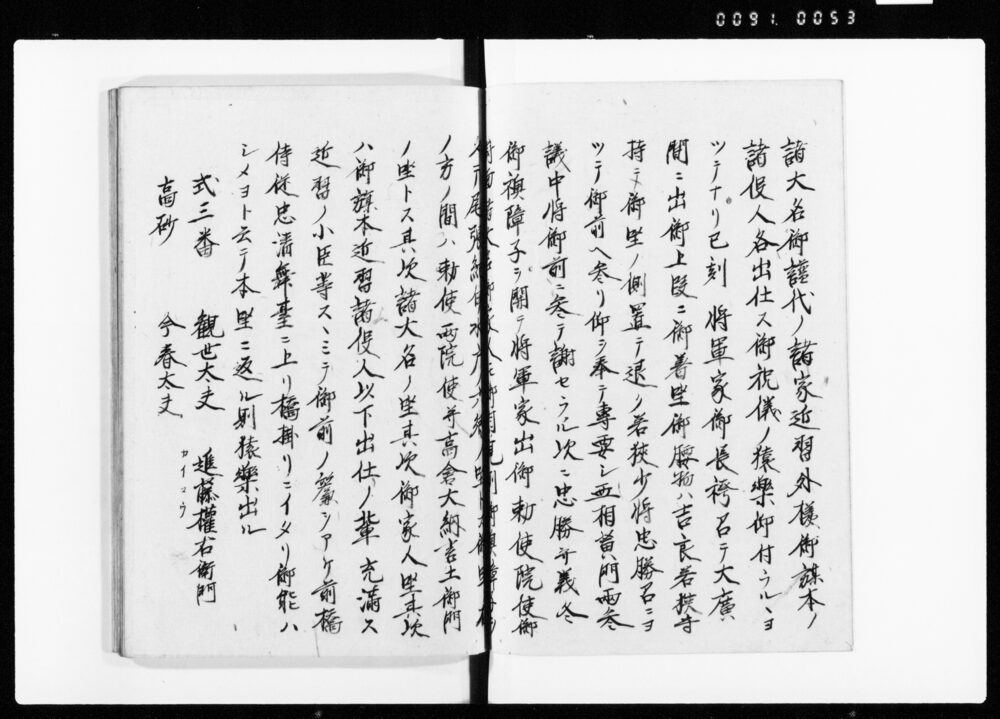 0091.0053
諸大名御譜代ノ諸家近習外様御旗本ノ
諸役人各出仕ス御祝儀ノ猿樂仰付ラルヽヨ
ツテナリ已刻 将軍家御長袴召テ大廣
間ニ出御上段ニ御着坐御腰物ハ吉良若狭守
持テ御坐ノ側置テ退ク若狭少将忠勝召ニヨ
ツテ御前ヘ参リ仰ヲ奉テ専要シ両相黄門両参
議中将御前ニ参テ謝セラル次ニ忠勝并義冬
御襖障子ヲ開テ将軍家出御勅使院使御
ノ方ノ間ハ勅使両院使并高倉大納言土御門
ノ坐トス其次諸大名ノ坐其次御家人坐其次
ハ御旗本近習諸役人以下出仕ノ輩充満ス
近習ノ小臣等スヽミテ御前ノ簾シアケ前橋
侍従忠清舞臺ニ上リ橋掛リニイタリ御能ハ
シメヨト云テ本坐ニ返ル則猿樂出ル
式三番 観世太夫 進藤權右衛門
高砂 今春太夫